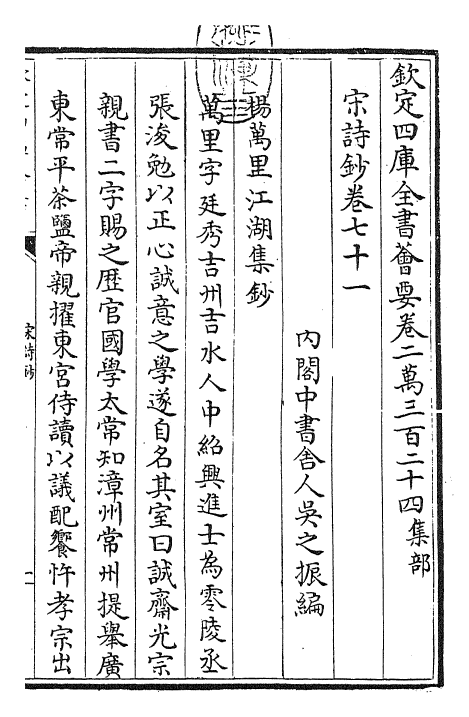 欽定四庫全書薈要卷二萬三百二十四集部
宋詩鈔卷七十一
內閣中書舍人吳之振編
楊萬里江湖集鈔
萬里字廷秀吉州吉水人中紹興進士為零陵丞
張浚勉以正心誠意之學遂自名其室曰誠齋光宗
親書二字賜之歴官國學太常知漳州常州提舉廣
東常平茶鹽帝親擢東宮侍讀以議配饗忤孝宗出
宋詩鈔